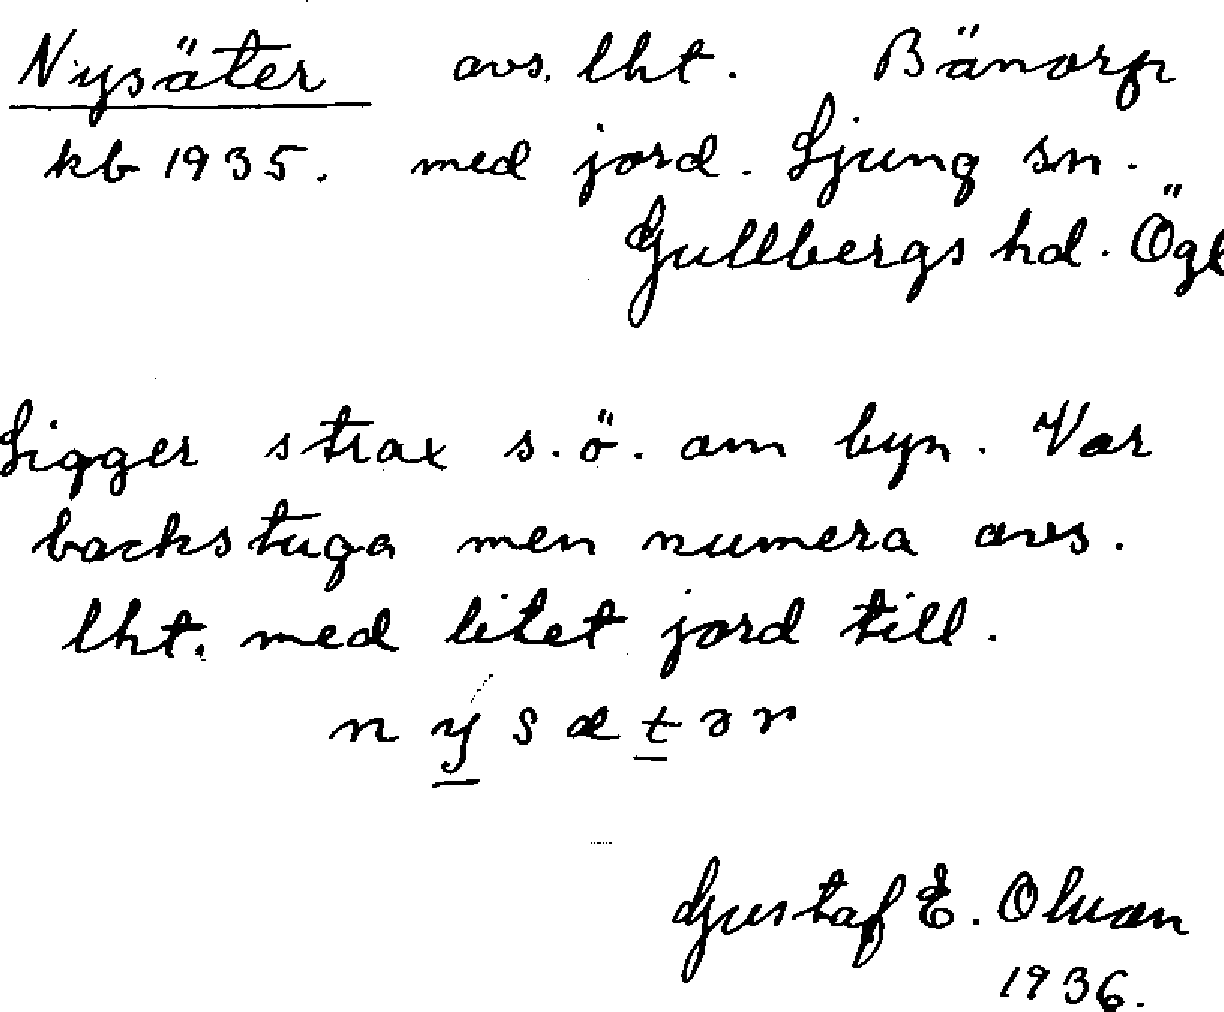 Nysäter avs. lht. Bänorp
kb 1935. med jord. Ljung sn.
Gullbergs hd. Ögl
Ligger strax s.ö. om byn. Var
backstuga men numera avs.
lht. med litet jord till.
n y s æ t ə r
Gustaf E. Olson
1936.